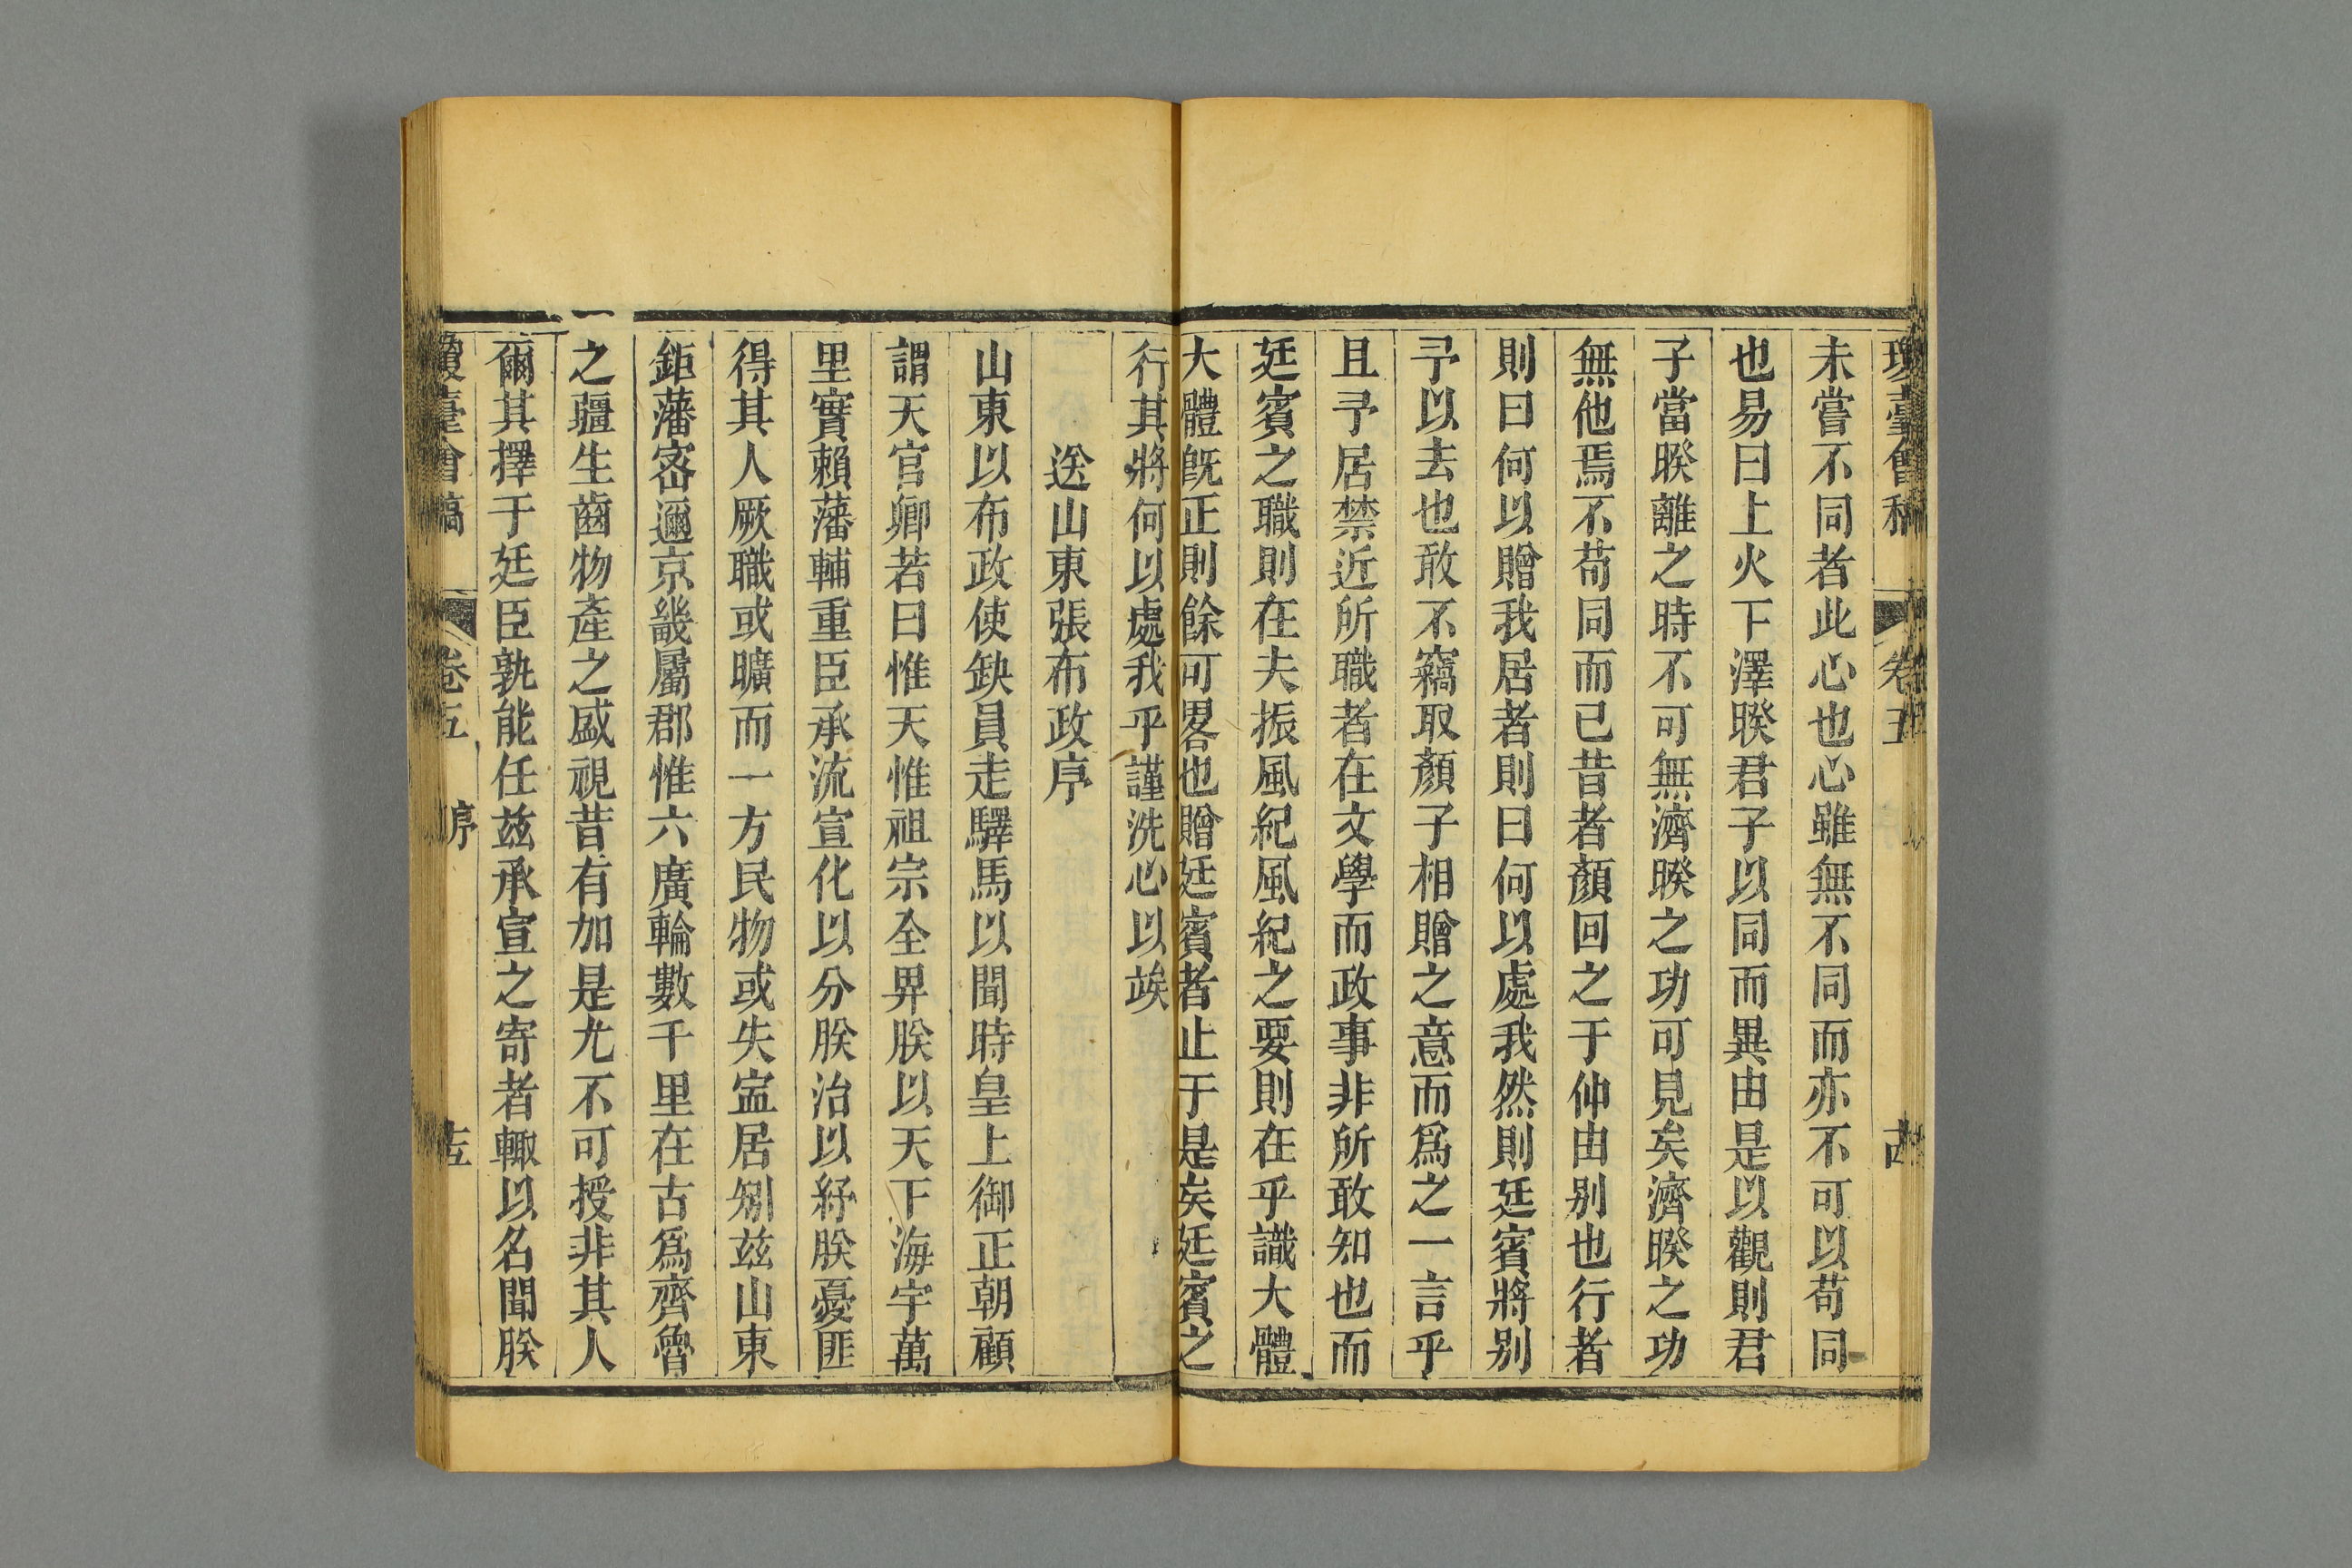 瓊臺會稿 卷五 十四
未嘗不同者此心也心雖無不同而亦不可以苟同
也易曰上火下澤睽君子以同而異由是以觀則君
子當睽離之時不可無濟睽之功可見矣濟睽之功
無他焉不苟同而已昔者顏回之于仲由別也行者
則曰何以贈我居者則曰何以處我然則廷賓將別
予以去也敢不竊取顏子相贈之意而爲之一言乎
且予居禁近所職者在文學而政事非所敢知也而
廷賓之職則在夫振風紀風紀之要則在乎識大體
大體旣正則餘可畧也贈廷賓者止于是矣廷賓之
行其將何以處我乎謹洗心以竢
送山東張布政序
山東以布政使缺員走驛馬以聞時皇上御正朝顧
謂天官卿若曰惟天惟祖宗全畀朕以天下海宇萬
里實賴藩輔重臣承流宣化以分朕治以紓朕憂匪
得其人厥職或曠而一方民物或失寍居矧兹山東
鉅藩宻邇京畿屬郡惟六廣輪數千里在古爲齊魯
之疆生齒物產之盛視昔有加是尤不可授非其人
爾其擇于廷臣孰能任兹承宣之寄者輙以名聞朕
瓊臺會稿 卷五 序 十五